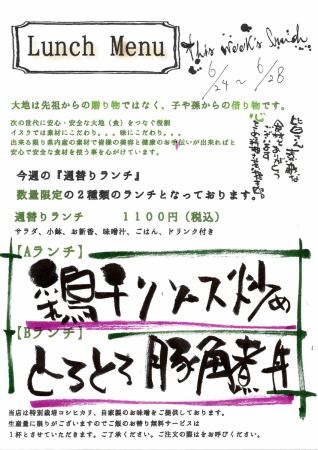 Lunch Menu
This Week's Lunch
6/24 ~ 6/28
大地は先祖からの贈り物ではなく、子や孫からの借り物です。
次の世代に安心・安全な大地（食）をつなぐ役割
イスクでは素材にこだわり。。。味にこだわり。。。
出来る限り県内産の素材で皆様の美容と健康のお手伝いが出来ればと
安心で安全な食材を使う事を心がけています。
今週の『週替りランチ』
数量限定の２種類のランチとなっております。
週替りランチ　１１００円（税込）
サラダ、小鉢、お新香、味噌汁、ごはん、ドリンク付き
【Aランチ】
鶏チリソース炒め
【Bランチ】
とろとろ豚角煮丼
当店は特別栽培コシヒカリ、自家製のお味噌をご提供しております。
生産量に限りがございますのでご飯のお替り無料サービスは
１杯とさせていただきます。ご了承ください。ご注文の際はをお呼びください。